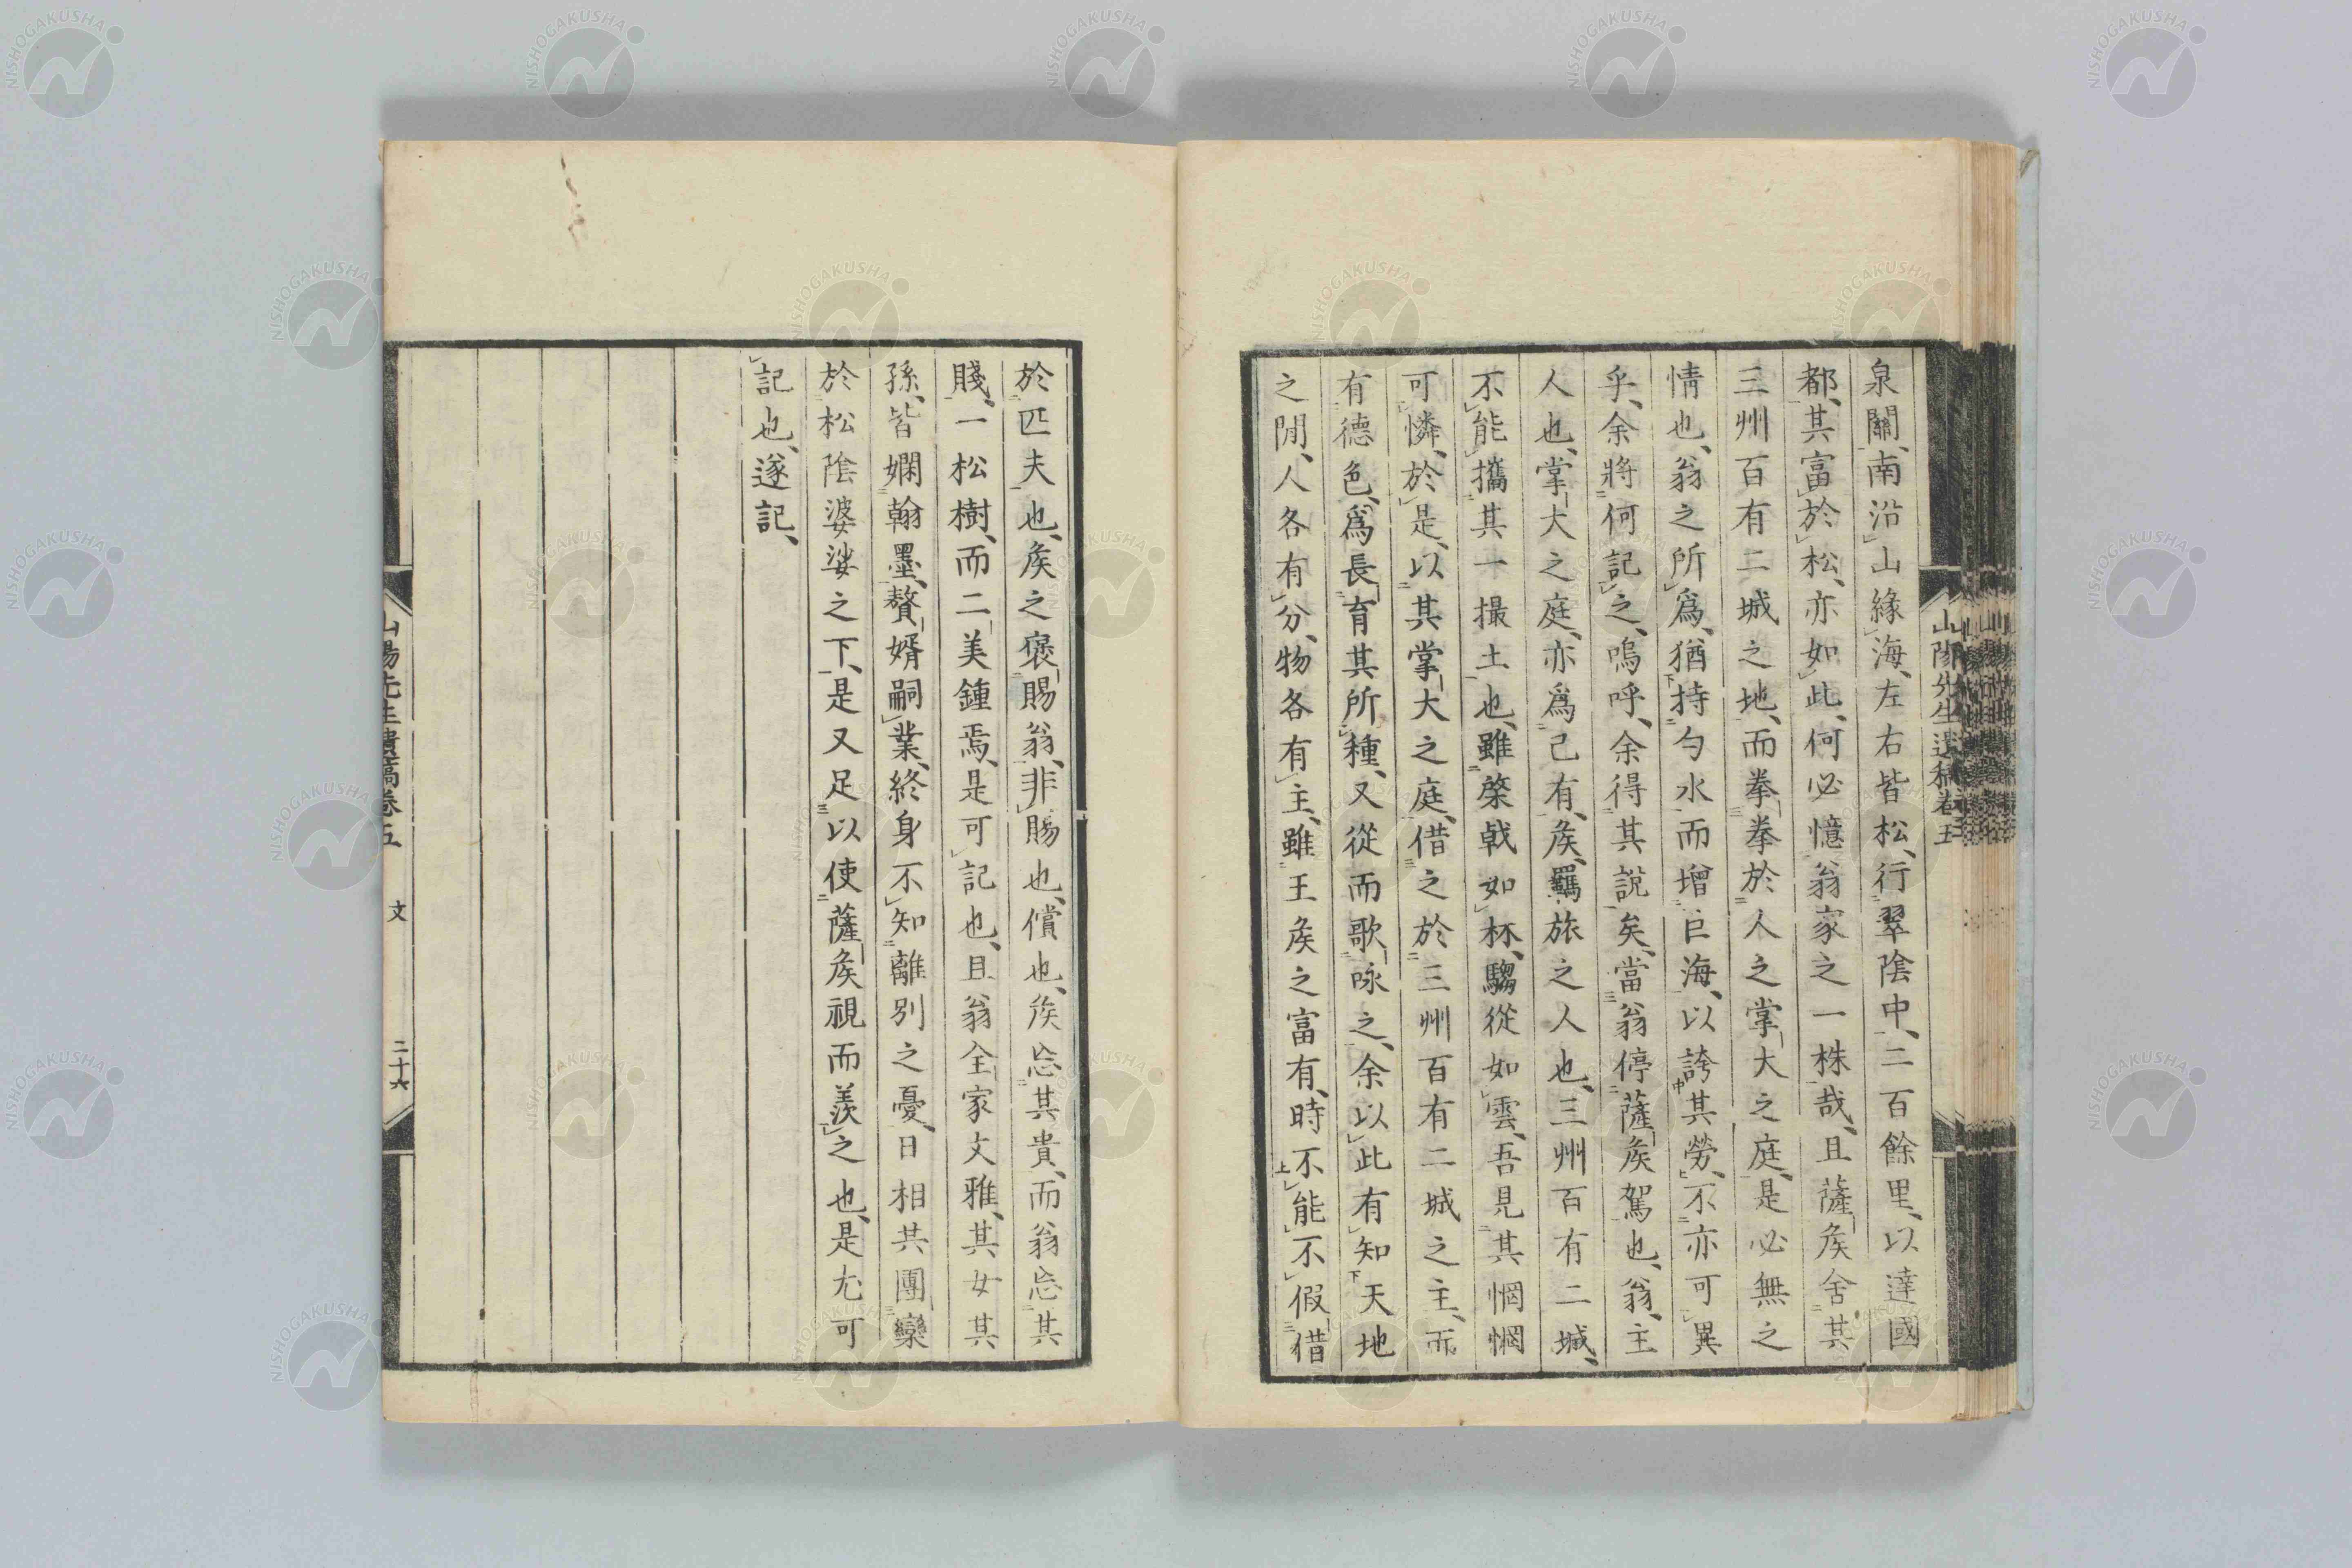 泉關、南沿山緣海、左右皆松、行翠陰中、二百餘里、以達國
都、其富於松、亦如此、何必憶翁家之一株哉、且薩矦舍其
三州百有二城之地、而拳拳於人之掌大之庭、是必無之
情也、翁之所爲、猶持勺水而增巨海、以誇其勞、不亦可異
乎、余將何記之、嗚呼、余得其說矣、當翁停薩矦駕也、翁、主
人也、掌大之庭、亦爲己有、矦、羈旅之人也、三州百有二城、
不能攜其一撮土也、雖棨戟如林、騶從如雲、吾見其惘惘
可憐、於是、以其掌大之庭、借之於三州百有二城之主、而
有德色、爲長育其所種、又從而歌咏之、余以此有知天地
之閒、人各有分、物各有主、雖王矦之富有、時不能不假借
於匹夫也、矦之褒賜翁、非賜也、償也、矦忘其貴、而翁忘其
賤、一松樹、而二美鍾焉、是可記也、且翁全家文雅、其女其
孫、皆嫻翰墨、贅婿嗣業、終身不知離別之憂、日相共團欒
於松陰婆娑之下、是又足以使薩矦視而羨之也、是尤可
記也、遂記、
山陽先生遺稿卷五
文
二十六
山陽先生遺稿卷五
NISHOGAKUSHA